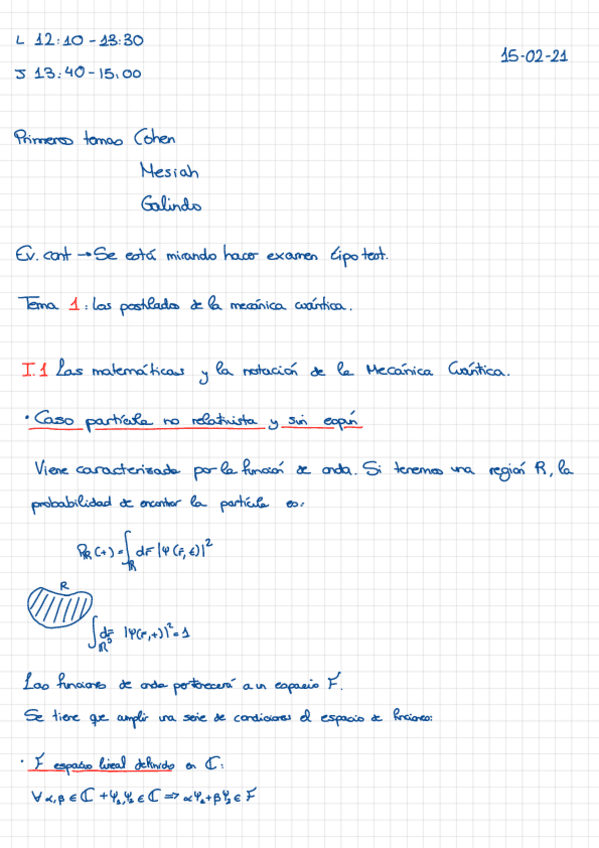 L 12:10 - 13:30
15-02-21
J 13:40 - 15:00
Primeros temas Cohen
Mesiah
Galindo
Ev. cont → Se está mirando hacer examen tipo test.
Tema 1: Los postulados de la mecánica cuántica.
I.1 Las matemáticas y la notación de la Mecánica Cuántica.
· Caso partícula no relativista y sin espín
Viene caracterizada por la función de onda. Si tenemos una región R, la
probabilidad de encontrar la partícula es:
P_R(t) = ∫_R dr̄ |Ψ(r̄,t)|²
R
∫_ℝ³ dr̄ |Ψ(r̄,t)|² = 1
Las funciones de onda pertenecerá a un espacio F.
Se tiene que cumplir una serie de condiciones el espacio de funciones:
· F espacio lineal definido en ℂ:
∀ α, β ∈ ℂ + Ψ₁, Ψ₂ ∈ ℂ ⇒ αΨ₁ + βΨ₂ ∈ F